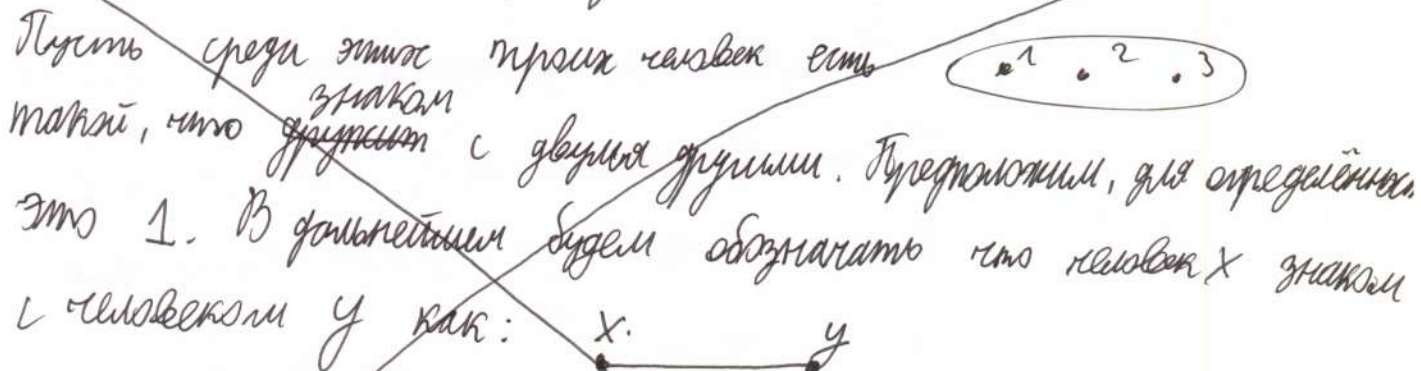 Пусть среди этих троих человек есть
1 2 3
знаком
такой, что дружит с двумя другими. Предположим, для определённос
это 1. В дальнейшем будем обозначать что человек X знаком
с человеком y как:
X. y